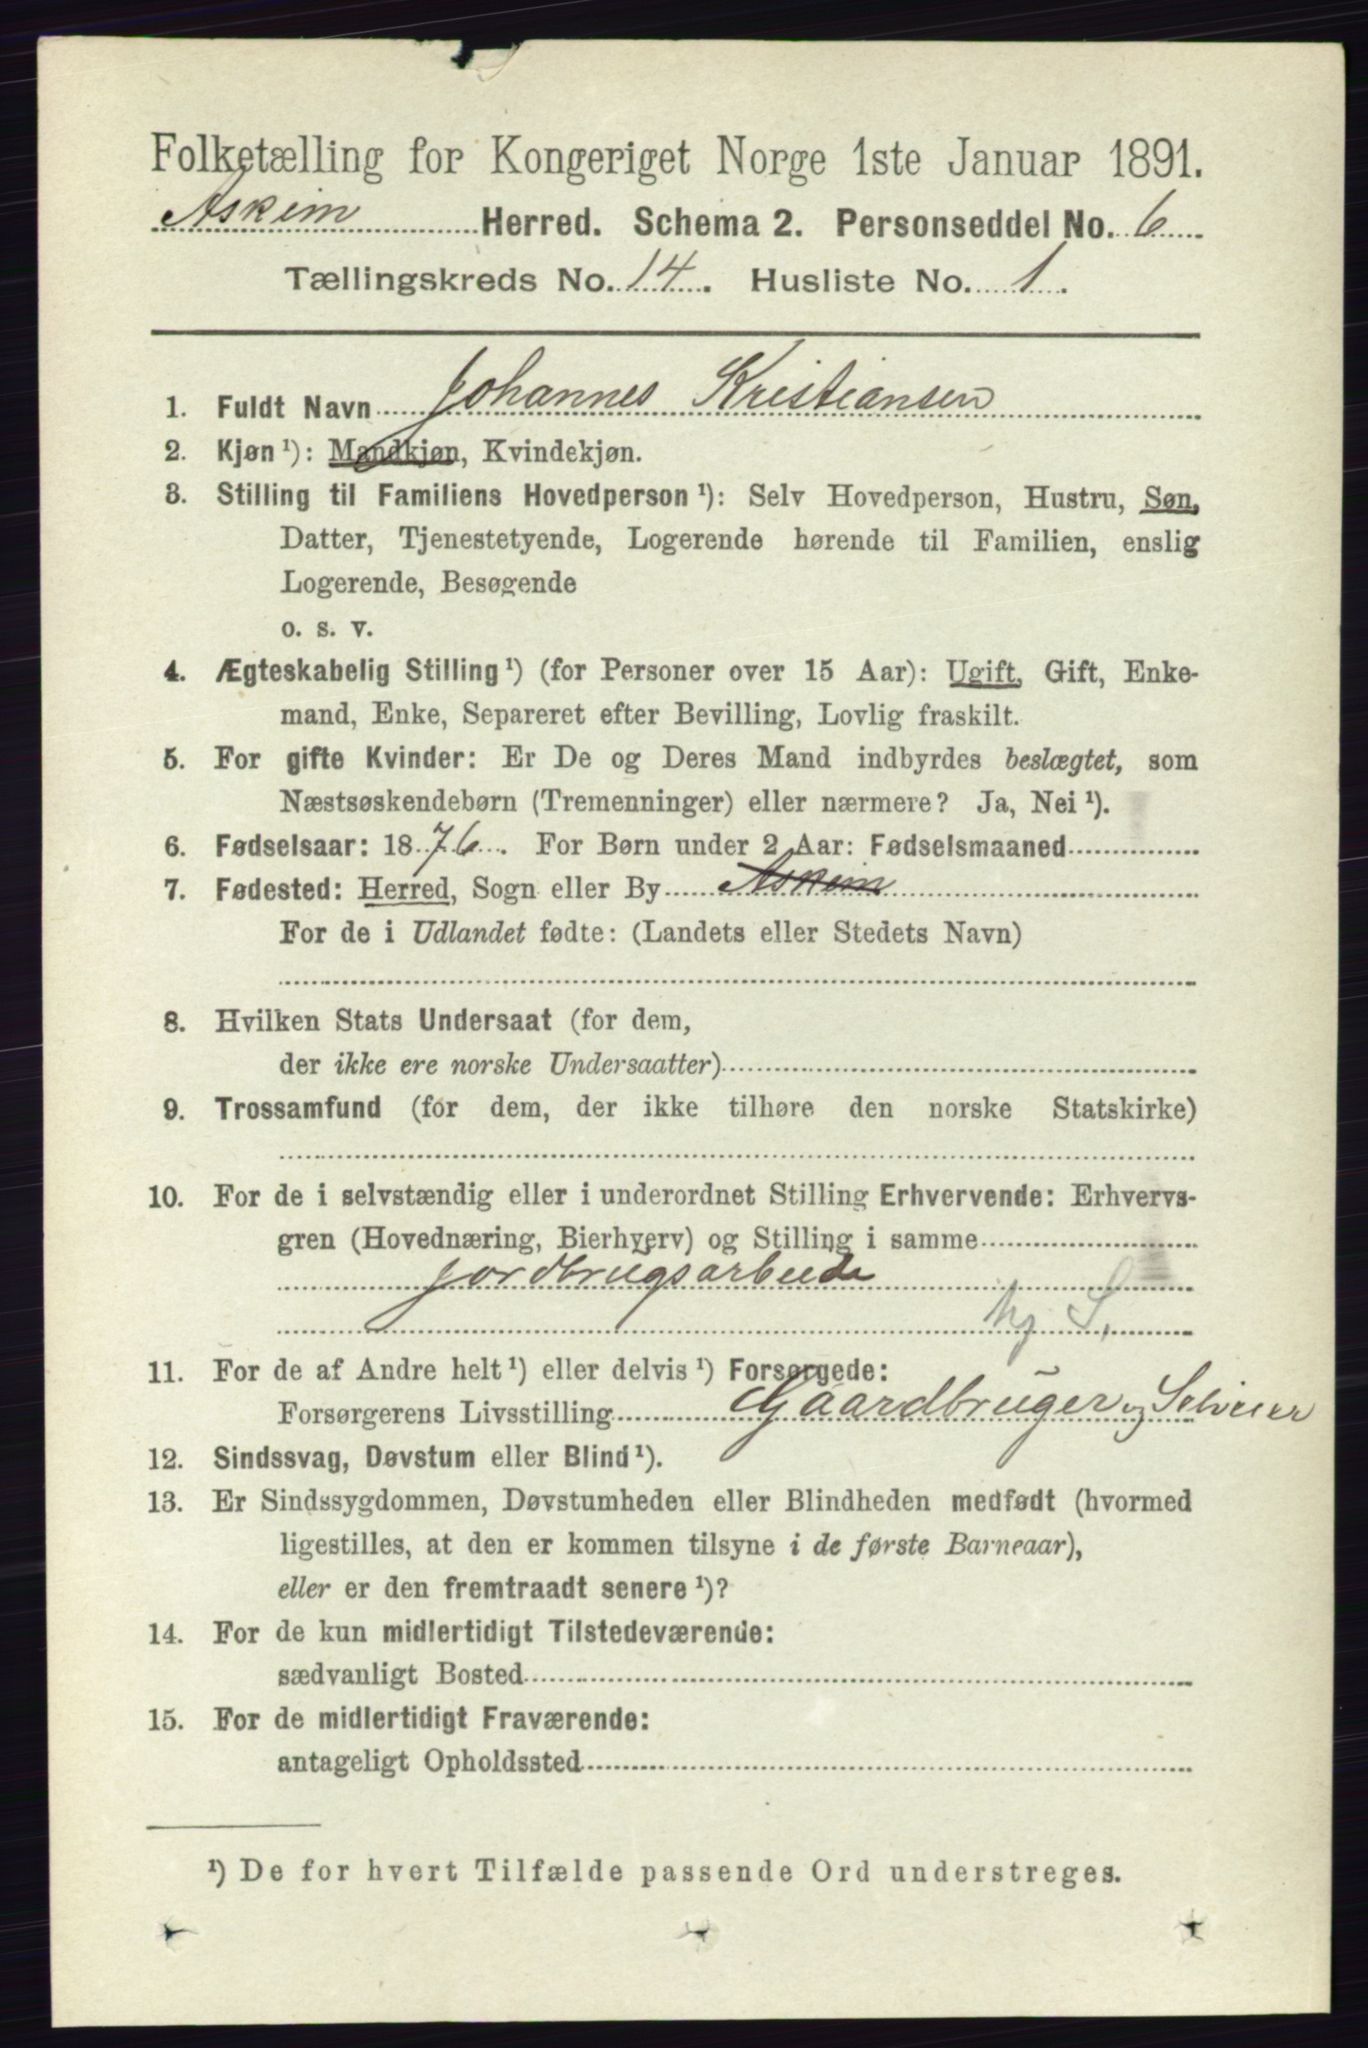 Folketælling for Kongeriget Norge 1ste Januar 1891.
Askim Herred. Schema 2. Personseddel No. 6
Tællingskreds No. 14. Husliste No. 1.
1. Fuldt Navn Johannes Kristiansen
2. Kjøn ¹): Mandkjøn, Kvindekjøn.
3. Stilling til Familiens Hovedperson ¹): Selv Hovedperson, Hustru, Søn,
Datter, Tjenestetyende, Logerende hørende til Familien, enslig
Logerende, Besøgende
o. s. v.
4. Ægteskabelig Stilling ¹) (for Personer over 15 Aar): Ugift, Gift, Enke-
mand, Enke, Separeret efter Bevilling, Lovlig fraskilt.
5. For gifte Kvinder: Er De og Deres Mand indbyrdes beslægtet, som
Næstsøskendebørn (Tremenninger) eller nærmere? Ja, Nei ¹).
6. Fødselsaar: 1876. For Børn under 2 Aar: Fødselsmaaned
7. Fødested: Herred, Sogn eller By Askim
For de i Udlandet fødte: (Landets eller Stedets Navn)
8. Hvilken Stats Undersaat (for dem,
der ikke ere norske Undersaatter)
9. Trossamfund (for dem, der ikke tilhøre den norske Statskirke)
10. For de i selvstændig eller i underordnet Stilling Erhvervende: Erhvervs-
gren (Hovednæring, Bierhverv) og Stilling i samme
Jordbrugsarbeide
hj S,
11. For de af Andre helt ¹) eller delvis ¹) Forsørgede:
Forsørgerens Livsstilling Gaardbruger og Selveier
12. Sindssvag, Døvstum eller Blind ¹).
13. Er Sindssygdommen, Døvstumheden eller Blindheden medfødt (hvormed
ligestilles, at den er kommen tilsyne i de første Barneaar),
eller er den fremtraadt senere ¹)?
14. For de kun midlertidigt Tilstedeværende:
sædvanligt Bosted
15. For de midlertidigt Fraværende:
antageligt Opholdssted
¹) De for hvert Tilfælde passende Ord understreges.